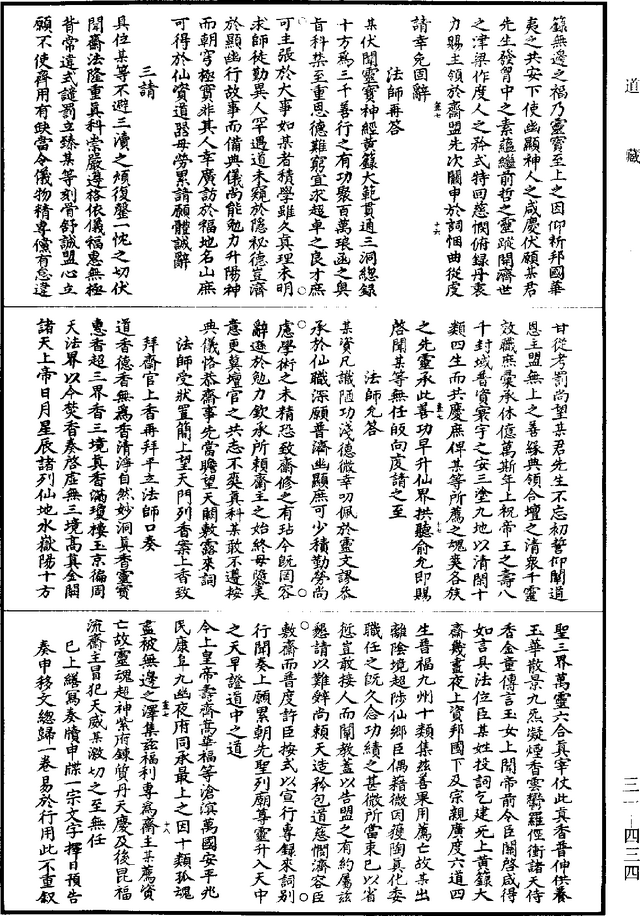 道藏
籙無邊之福乃靈寶至上之因仰祈邦國華
夷之共安下使幽顯神人之咸慶伏願某君
先生發胷中之素蘊繼前哲之靈蹤開濟世
之津梁作度人之矜式特回慈憫俯錄丹衷
力賜主領於齋盟先次關申於詞悃曲從虔
請幸免固辭
法師再答
某伏聞靈寶神經黃籙大範貫通三洞總錄
十方為三千善行之有功聚百萬琅函之奧
旨科禁至重恩德難窮宜求超卓之良才庶
可主張於大事如某者積學雖久真理未明
求師徒勤異人罕遇道未窺於隱祕德豈濟
於顯幽行故事而備典儀尚能勉力升陽神
而朝穹極實非其人幸廣訪於福地名山庶
可得於仙資道器毋勞累請願體誠辭
三請
具位某等不避三瀆之煩復罄一忱之切伏
聞齋法隆重真科崇嚴遵格依儀福惠無極
背常違式譴罰立臻某等刻骨舒誠盟心立
願不使齋用有缺當令儀物精專儻有怠違
甘從考罰尚望某君先生不忘初誓仰闡道
恩主盟無上之善緣典領合壇之清衆千靈
效職庶彙承休億萬斯年上祝帝王之壽八
十封域普資寰宇之安三塗九地以清閑十
類四生而共慶庶俾某等所薦之魂爽各族
之先靈承此善功早升仙界拱聽俞允即賜
啓聞某等無任皈向虔請之至
法師允答
某資凡識陋功淺德微幸叨佩於靈文謬叅
承於仙職深願普濟幽顯庶可少積勤勞尚
慮學術之未精恐致齋修之有玷今既罔容
辭遜於勉力欽承所賴齋主之始終毋隳美
意更冀壇官之共志不爽真科某敢不遵按
典儀恪恭齋事先當瞻望天闕敷露來詞
法師受狀置簡上望天門列香案上香致
拜齋官上香再拜平立法師口奏
道香德香無為香清淨自然妙洞真香靈寶
惠香超三界香三境真香滿瓊樓玉京徧周
天法界以今焚香奏啓虛無三境高真金闕
諸天上帝日月星辰諸列仙地水嶽陽十方
聖三界萬靈六合真宰仗此真香普伸供養
玉華散景九炁凝煙香雲欝羅徑衝諸天侍
香金童傳言玉女上聞帝前令臣關啓咸得
如言具法位臣某姓投詞乞建死上黃籙大
齋幾晝夜上資邦國下及宗親廣度六道四
生普福九州十類集茲善果用薦亡故某出
離陰境超陟仙鄉臣偶藉微因獲陶真化委
職任之既久念功績之甚微所當束已以省
愆豈敢接人而闡教蓋以啓盟之有約屬茲
懇請以難辭尚賴天造矜包道慈憫濟容臣
敷齋而普度許臣按式以宣行專錄來詞別
行聞奏上願累朝先聖列廟尊靈升入天中
之天早證道中之道
今上皇帝壽齊高華福等滄溟萬國安平兆
民康阜九幽夜府同承最上之因十類孤魂
盡被無邊之澤集茲福利專為齋主某薦資
亡故靈魂超神紫府鍊質丹天慶及後昆福
流齋主冒犯天威某激切之至無任
巳上繕寫奏牘申牒一宗文字擇日預告
奏申移文總歸一卷易於行用此不重叙
三一—四三四